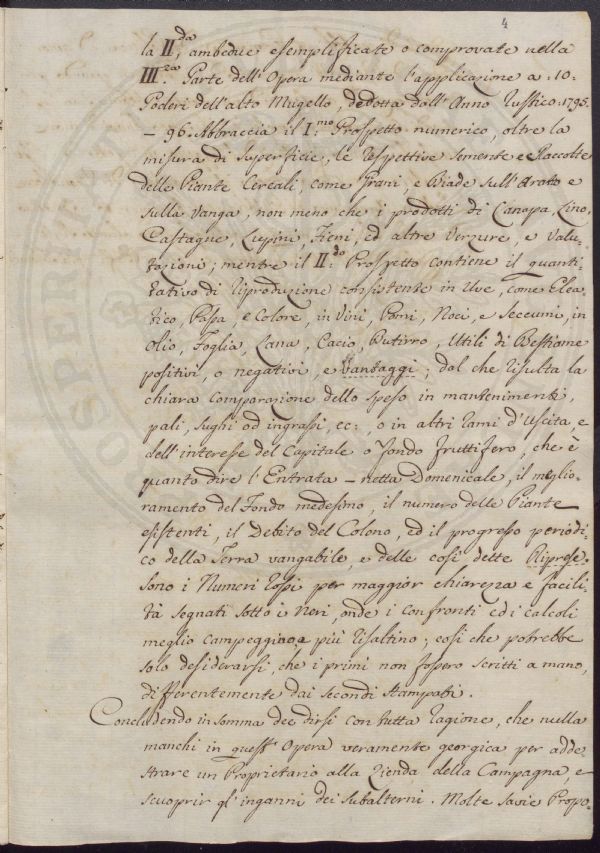 4
la II.da, ambedue esemplificate o comprovate nella
III.za Parte dell'Opera mediante l'applicazione a :10:
Poderi dell'alto Mugello, dedotta dall'Anno Russico: 1795.
– 96. Abbraccia il I.mo Prospetto numerico, oltre la
misura di superficie, le respettive semente e Raccolte
delle Piante Cereali, come Grani, e Biade sull'Arato e
sulla Vanga, non meno che i prodotti di Canapa, Lino,
Castagne, Lupini, Fieni, ed altre Verzure, e Valu-
tazioni; mentre il II.do Prospetto contiene il quanti-
tativo di riproduzione consistente in Uve, come Elea-
tico, Papa, e Colore, in Vini, Pomi, Noci, e Seccumi, in
olio, Foglia, Lana, Cacio, Butirro, Utili di Bestiame
positivi, o negativi, e Vantaggi; dal che risulta la
chiara Comparazione delle spese in mantenimenti,
pali, sughi od ingrassi, ec:, o in altri rami d'Uscita, e
dell'interesse del Capitale o Fondo fruttifero, che è
quanto dire l'Entrata – netta Domenicale, il meglio-
ramento del Fondo medesimo, il numero delle Piante
esistenti, il Debito del Colono, ed il progresso periodi-
co della Terra vangabile, e delle così dette Riprese.
Sono i Numeri rossi per maggior chiarezza e facili-
tà segnati sotto i Neri, onde i confronti ed i calcoli
meglio campeggino, e più risaltino; così che potrebbe
solo desiderarsi, che i primi non fossero scritti a mano,
differentemente dai secondi stampati.
Concludendo in somma dee dirsi con tutta ragione, che nulla
manchi in quest'Opera veramente georgica per adde-
strare un Proprietario alla Zienda della Campagna, e
scuoprir gl'inganni dei Subalterni. Molte savie Propo-